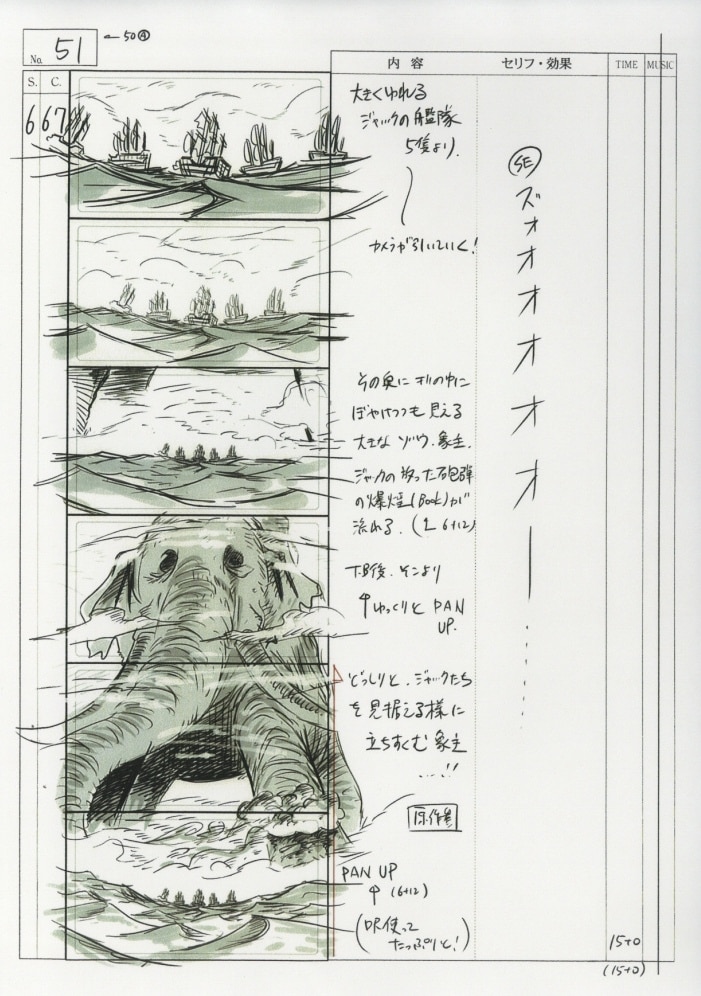 No. 51
←50Ⓐ
S. C. 内容 セリフ・効果 TIME MUSIC
6 67
大きくゆれる
ジャックの艦隊
5隻より.
カメラが引いていく!
その奥に
ぼやけつつも見える
大きなゾウ.象主.
ジャックの放った砲弾
の爆煙(Book)が
流れる. 6+12)
T.B後.そこより
↑ゆっくりと PAN
UP.
どっしりと.ジャックたち
を見据える様に
立ちすくむ象主
…!!
原作参
PAN UP
↑(6+12)
(尺使って
たっぷりと!)
SE
ズォオオオオオー
15+0
(15+0)